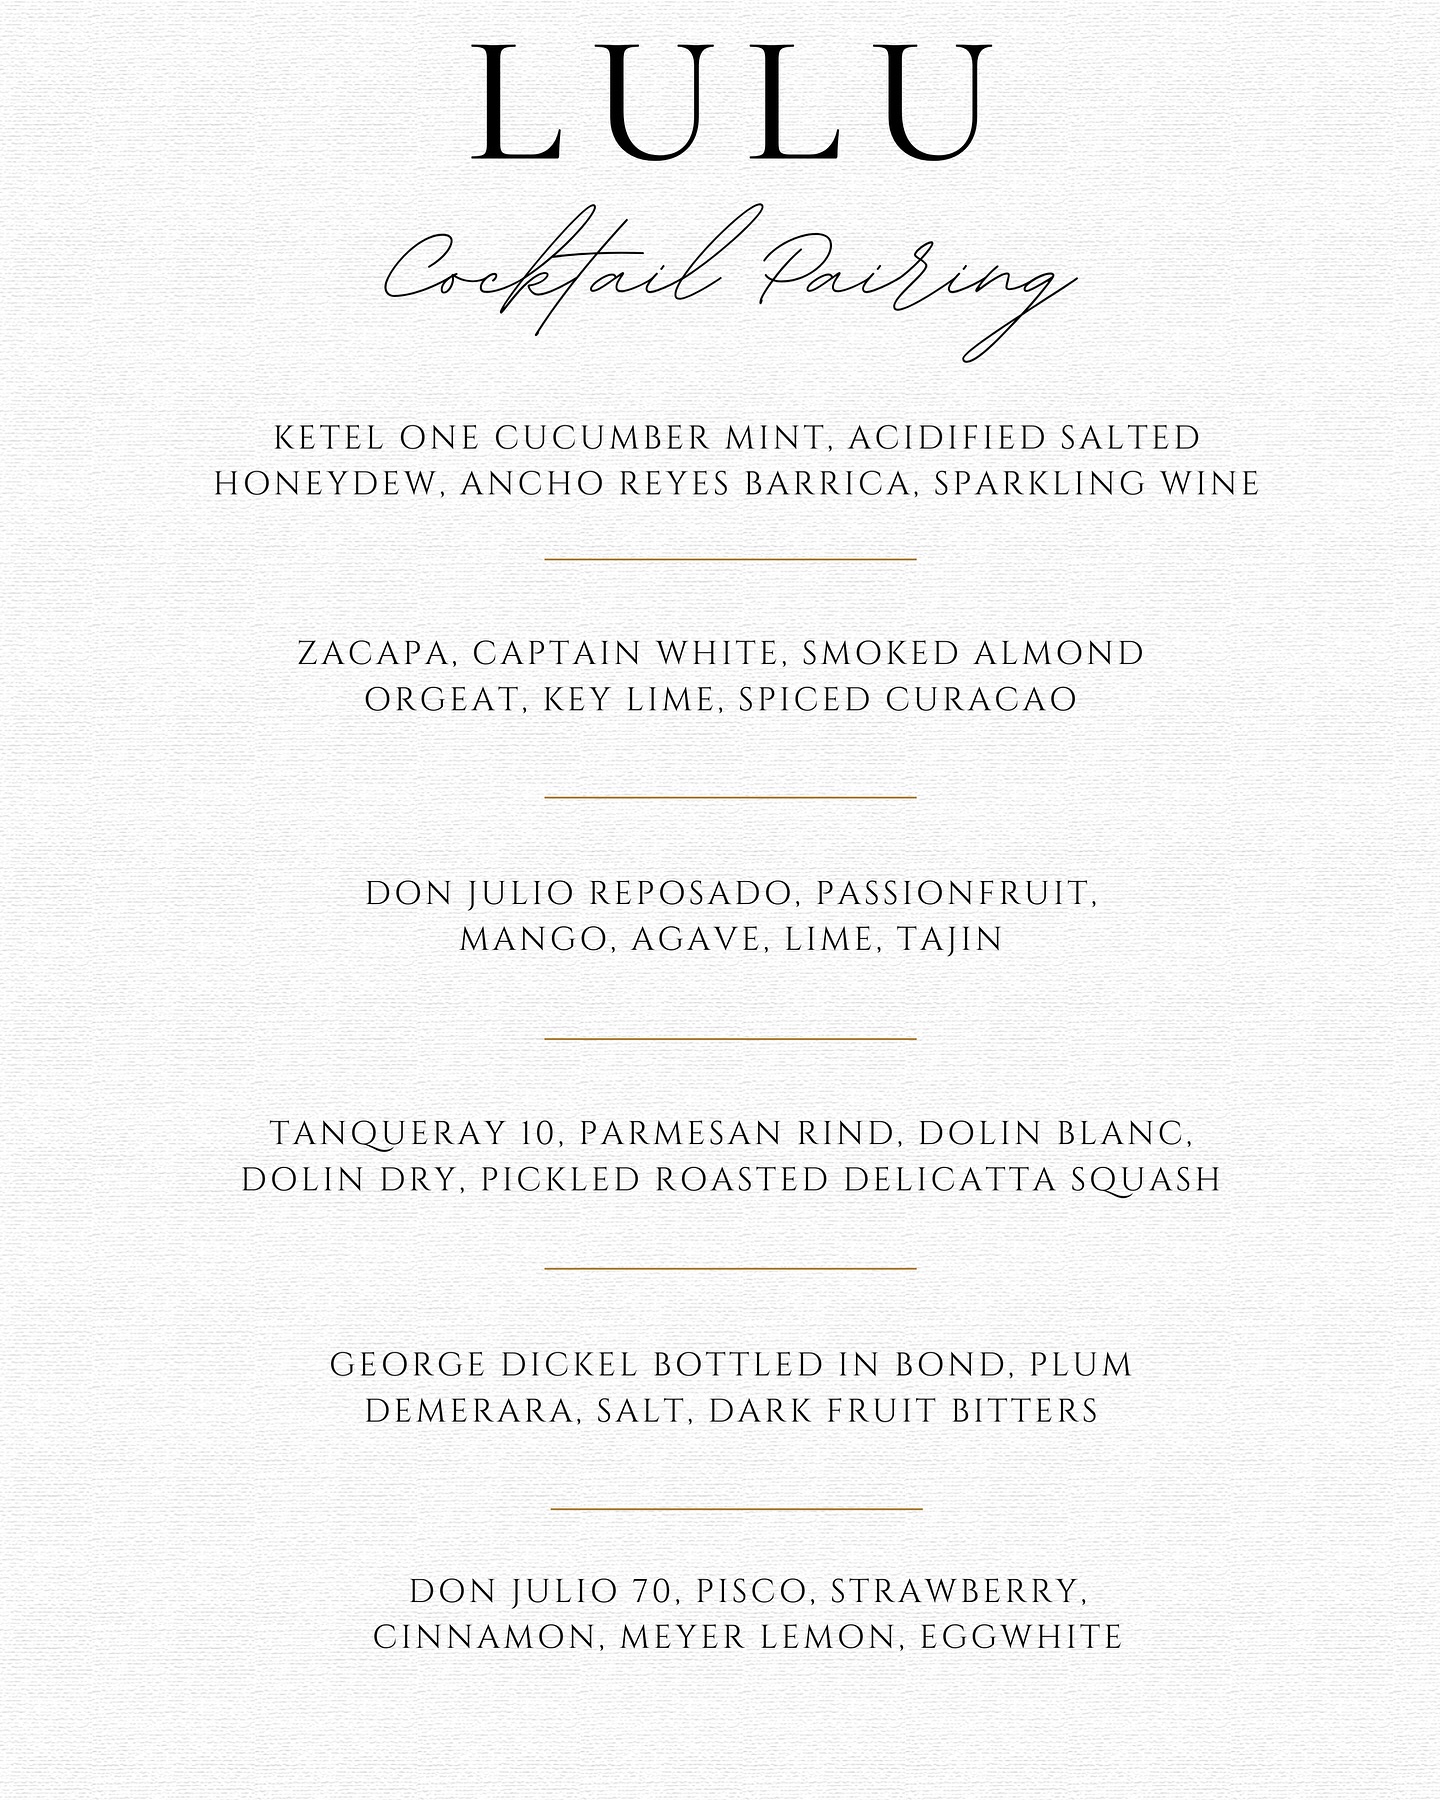 LULU
Cocktail Pairing
KETEL ONE CUCUMBER MINT, ACIDIFIED SALTED
HONEYDEW, ANCHO REYES BARRICA, SPARKLING WINE
ZACAPA, CAPTAIN WHITE, SMOKED ALMOND
ORGEAT, KEY LIME, SPICED CURACAO
DON JULIO REPOSADO, PASSIONFRUIT,
MANGO, AGAVE, LIME, TAJIN
TANQUERAY 10, PARMESAN RIND, DOLIN BLANC,
DOLIN DRY, PICKLED ROASTED DELICATTA SQUASH
GEORGE DICKEL BOTTLED IN BOND, PLUM
DEMERARA, SALT, DARK FRUIT BITTERS
DON JULIO 70, PISCO, STRAWBERRY,
CINNAMON, MEYER LEMON, EGGWHITE